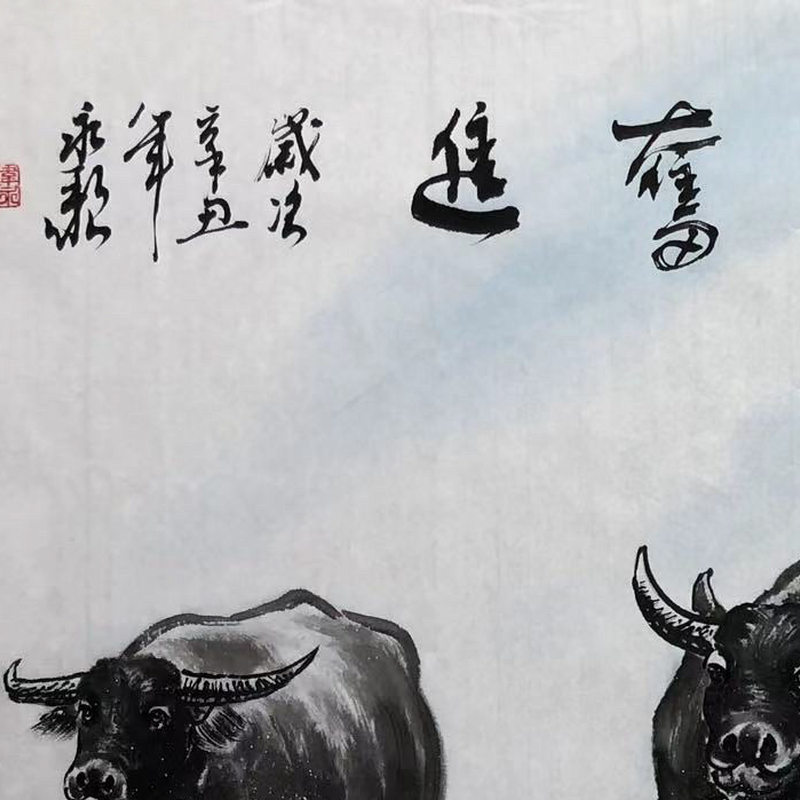 奮進
歲次
辛丑
年
永